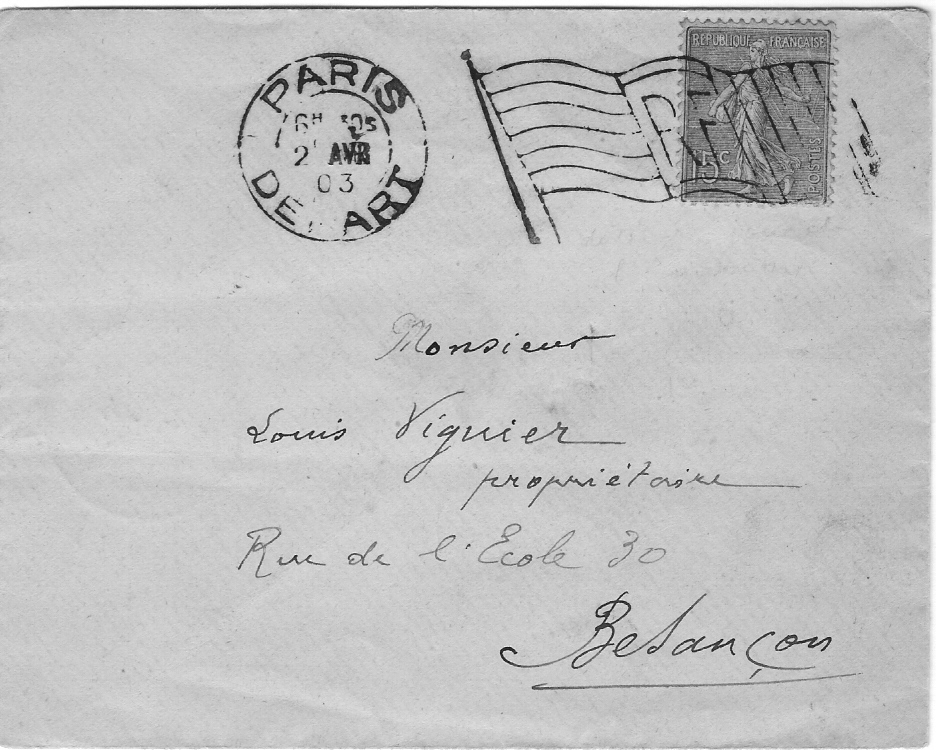 PARIS
AVR
03
DEPART
REPUBLIQUE FRANÇAISE
15 c
POSTES
Monsieur
Louis Viguier
propriétaire
Rue de l'Ecole 30
Besançon